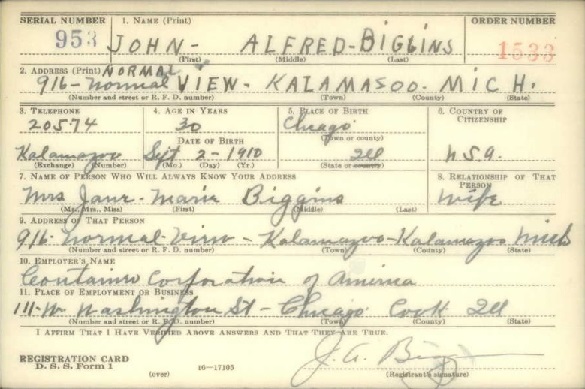 SERIAL NUMBER 1. NAME (Print) ORDER NUMBER
953 JOHN - ALFRED - BIGGINS 1533
(First) (Middle) (Last)
2. ADDRESS (Print) NORMAL
916 - Normal VIEW - KALAMASOO. MICH.
(Number and street or R. F. D. number) (Town) (County) (State)
3. TELEPHONE 4. AGE IN YEARS 5. PLACE OF BIRTH 6. COUNTRY OF CITIZENSHIP
20574 30 Chicago
DATE OF BIRTH (Town or county)
Kalamazoo Sept 2 - 1910 Ill U.S.A.
(Exchange) (Number) (Mo.) (Day) (Yr.) (State or country)
7. NAME OF PERSON WHO WILL ALWAYS KNOW YOUR ADDRESS 8. RELATIONSHIP OF THAT PERSON
Mrs Jane - Marie Biggins Wife
(Mr., Mrs., Miss) (First) (Middle) (Last)
9. ADDRESS OF THAT PERSON
916 - Normal View - Kalamazoo - Kalamazoo Mich
(Number and street or R. F. D. number) (Town) (County) (State)
10. EMPLOYER'S NAME
Container Corporation of America
11. PLACE OF EMPLOYMENT OR BUSINESS
111 - W Washington St - Chicago Cook Ill
(Number and street or R. F. D. number) (Town) (County) (State)
I AFFIRM THAT I HAVE VERIFIED ABOVE ANSWERS AND THAT THEY ARE TRUE.
REGISTRATION CARD J. A. Biggins
D. S. S. Form 1 (over) 16—17105 (Registrant's signature)